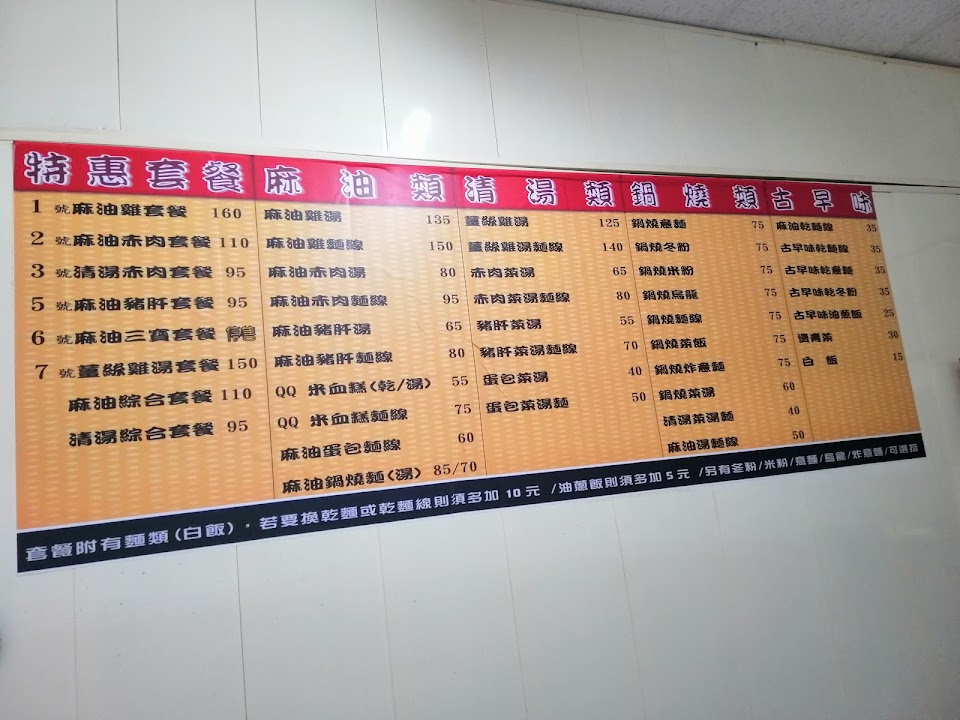 特惠套餐
1 號麻油雞套餐 160
2 號麻油赤肉套餐 110
3 號清湯赤肉套餐 95
5 號麻油豬肝套餐 95
6 號麻油三寶套餐 停售
7 號薑絲雞湯套餐 150
麻油綜合套餐 110
清湯綜合套餐 95
麻油類
麻油雞湯 135
麻油雞麵線 150
麻油赤肉湯 80
麻油赤肉麵線 95
麻油豬肝湯 65
麻油豬肝麵線 80
QQ 米血糕(乾/湯) 55
QQ 米血糕麵線 75
麻油蛋包麵線 60
麻油鍋燒麵(湯) 85/70
清湯類
薑絲雞湯 125
薑絲雞湯麵線 140
赤肉菜湯 65
赤肉菜湯麵線 80
豬肝菜湯 55
豬肝菜湯麵線 70
蛋包菜湯 40
蛋包菜湯麵 50
鍋燒類
鍋燒意麵 75
鍋燒冬粉 75
鍋燒米粉 75
鍋燒烏龍 75
鍋燒麵線 75
鍋燒菜飯 75
鍋燒炸意麵 75
鍋燒菜湯 60
清湯菜湯麵 40
麻油湯麵線 50
古早味
麻油乾麵線 35
古早味乾麵線 35
古早味乾意麵 35
古早味乾冬粉 35
古早味油蔥飯 25
燙青菜 30
白飯 15
套餐附有麵類(白飯)，若要換乾麵或乾麵線則須多加 10 元 /油蔥飯則須多加 5 元 /另有冬粉/米粉/意麵/烏龍/炸意麵/可選搭